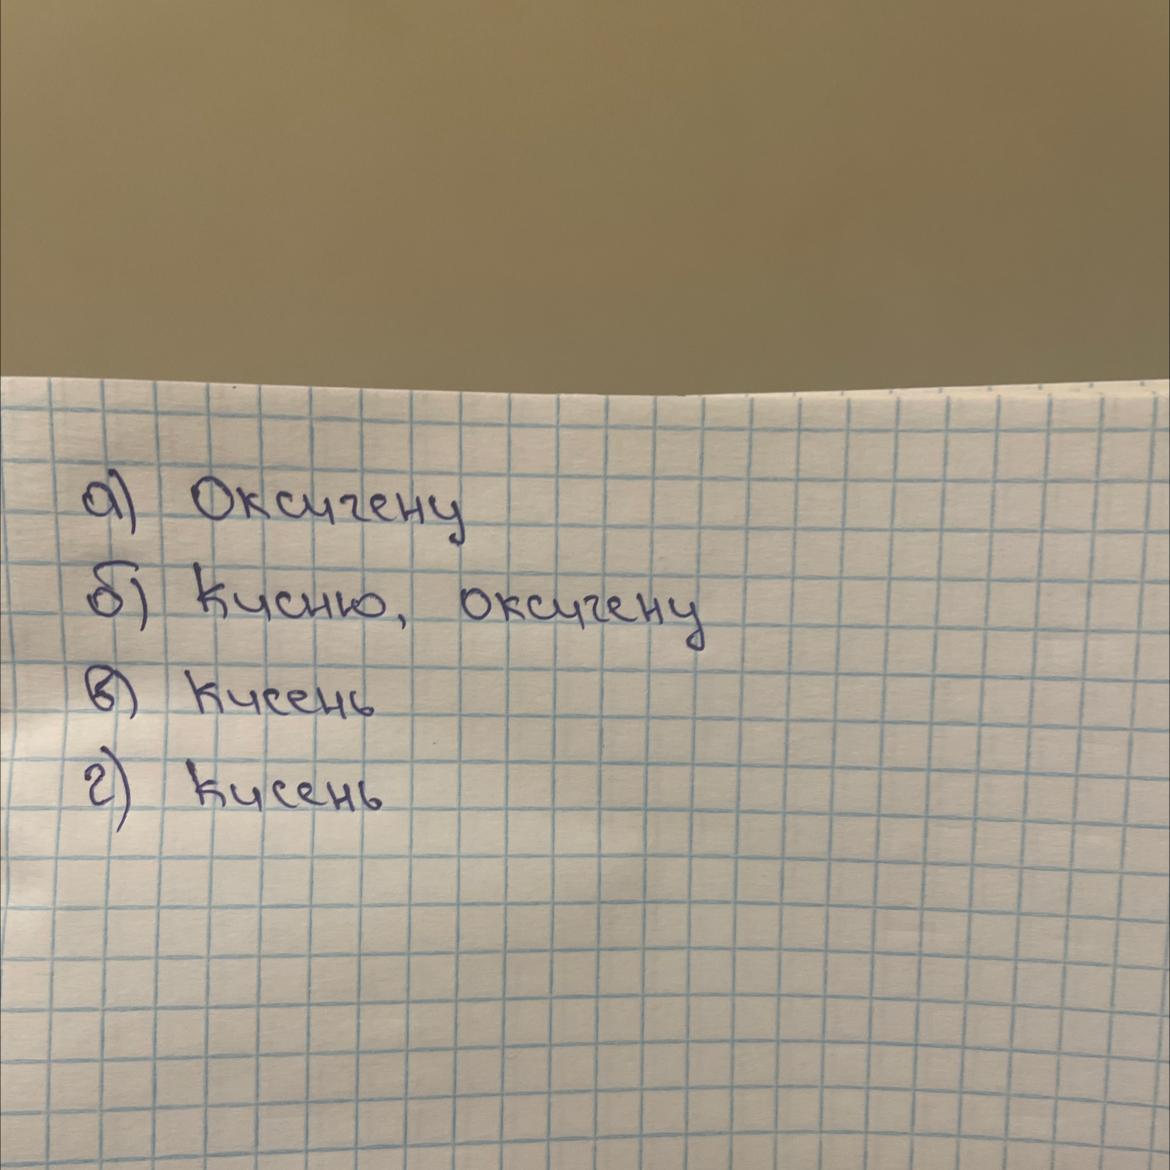 а) Оксигену
б) Кисню, оксигену
в) Кисень
г) Кисень